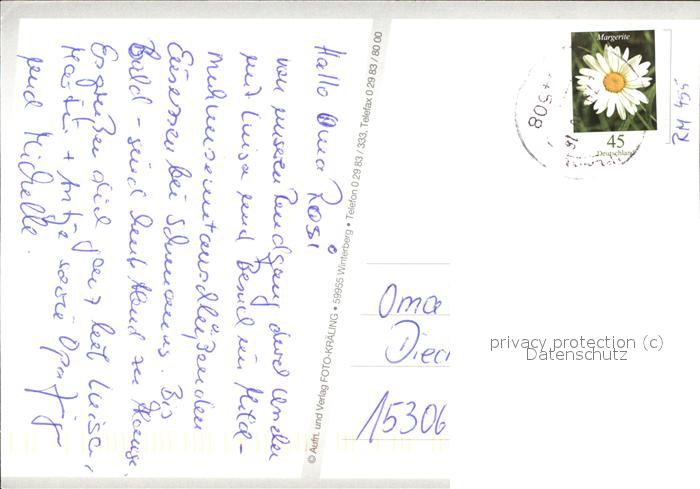 Hallo Oma Rosi
von unserem Rundgang durch
mit Luisa und Besuch im Wild-
mit anschließenden
Eisessen bei Bis
Bald - sind heut Abend zu Hause.
Es grüßen dich ganz lieb Luisa,
Martin + Antje sowie Opa
und Michelle.
© Aufn. und Verlag FOTO-KRÄLING • 59955 Winterberg • Telefon 0 29 83 / 333, Telefax 0 29 83 / 80 00
Margerite
45
Deutschland
508
RM 455
Oma
Dieci
15306
privacy protection (c)
Datenschutz